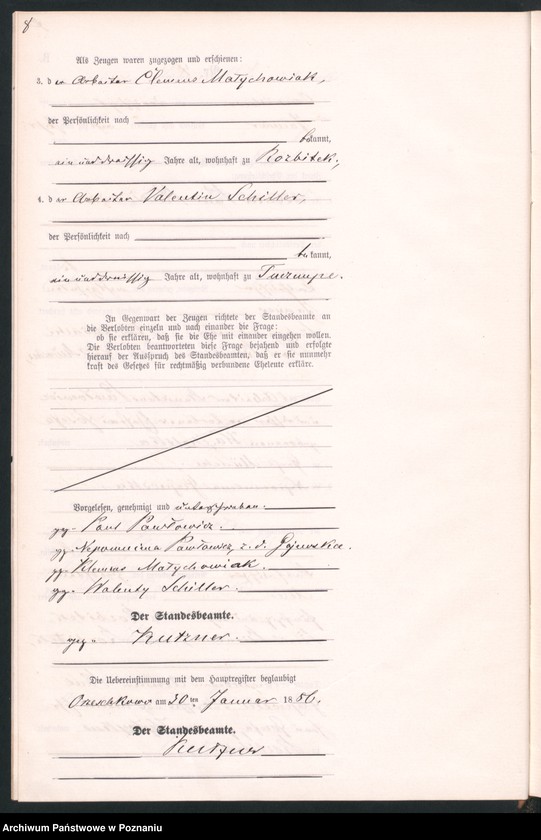 8
Als Zeugen waren zugezogen und erschienen:
3. d er Arbeiter Clemens Matychowiak,
der Persönlichkeit nach
bekannt,
ein und dreissig Jahre alt, wohnhaft zu Rozbitek;
4. d er Arbeiter Valentin Schiller,
der Persönlichkeit nach
be kannt,
ein und dreissig Jahre alt, wohnhaft zu
In Gegenwart der Zeugen richtete der Standesbeamte an
die Verlobten einzeln und nach einander die Frage:
ob sie erklären, daß sie die Ehe mit einander eingehen wollen.
Die Verlobten beantworteten diese Frage bejahend und erfolgte
hierauf der Ausspruch des Standesbeamten, daß er sie nunmehr
kraft des Gesetzes für rechtmäßig verbundene Eheleute erkläre.
Vorgelesen, genehmigt und unterschrieben.
gez. Paul Pawłowicz.
gez. Nepomucena Pawłowicz z. d. Gajewska.
gez. Klemens Matychowiak.
gez. Walenty Schiller.
Der Standesbeamte.
gez. Kutzner.
Die Uebereinstimmung mit dem Hauptregister beglaubigt
Orzeschkowo am 30 ten Januar 1886.
Der Standesbeamte.
Kutzner
Archiwum Państwowe w Poznaniu